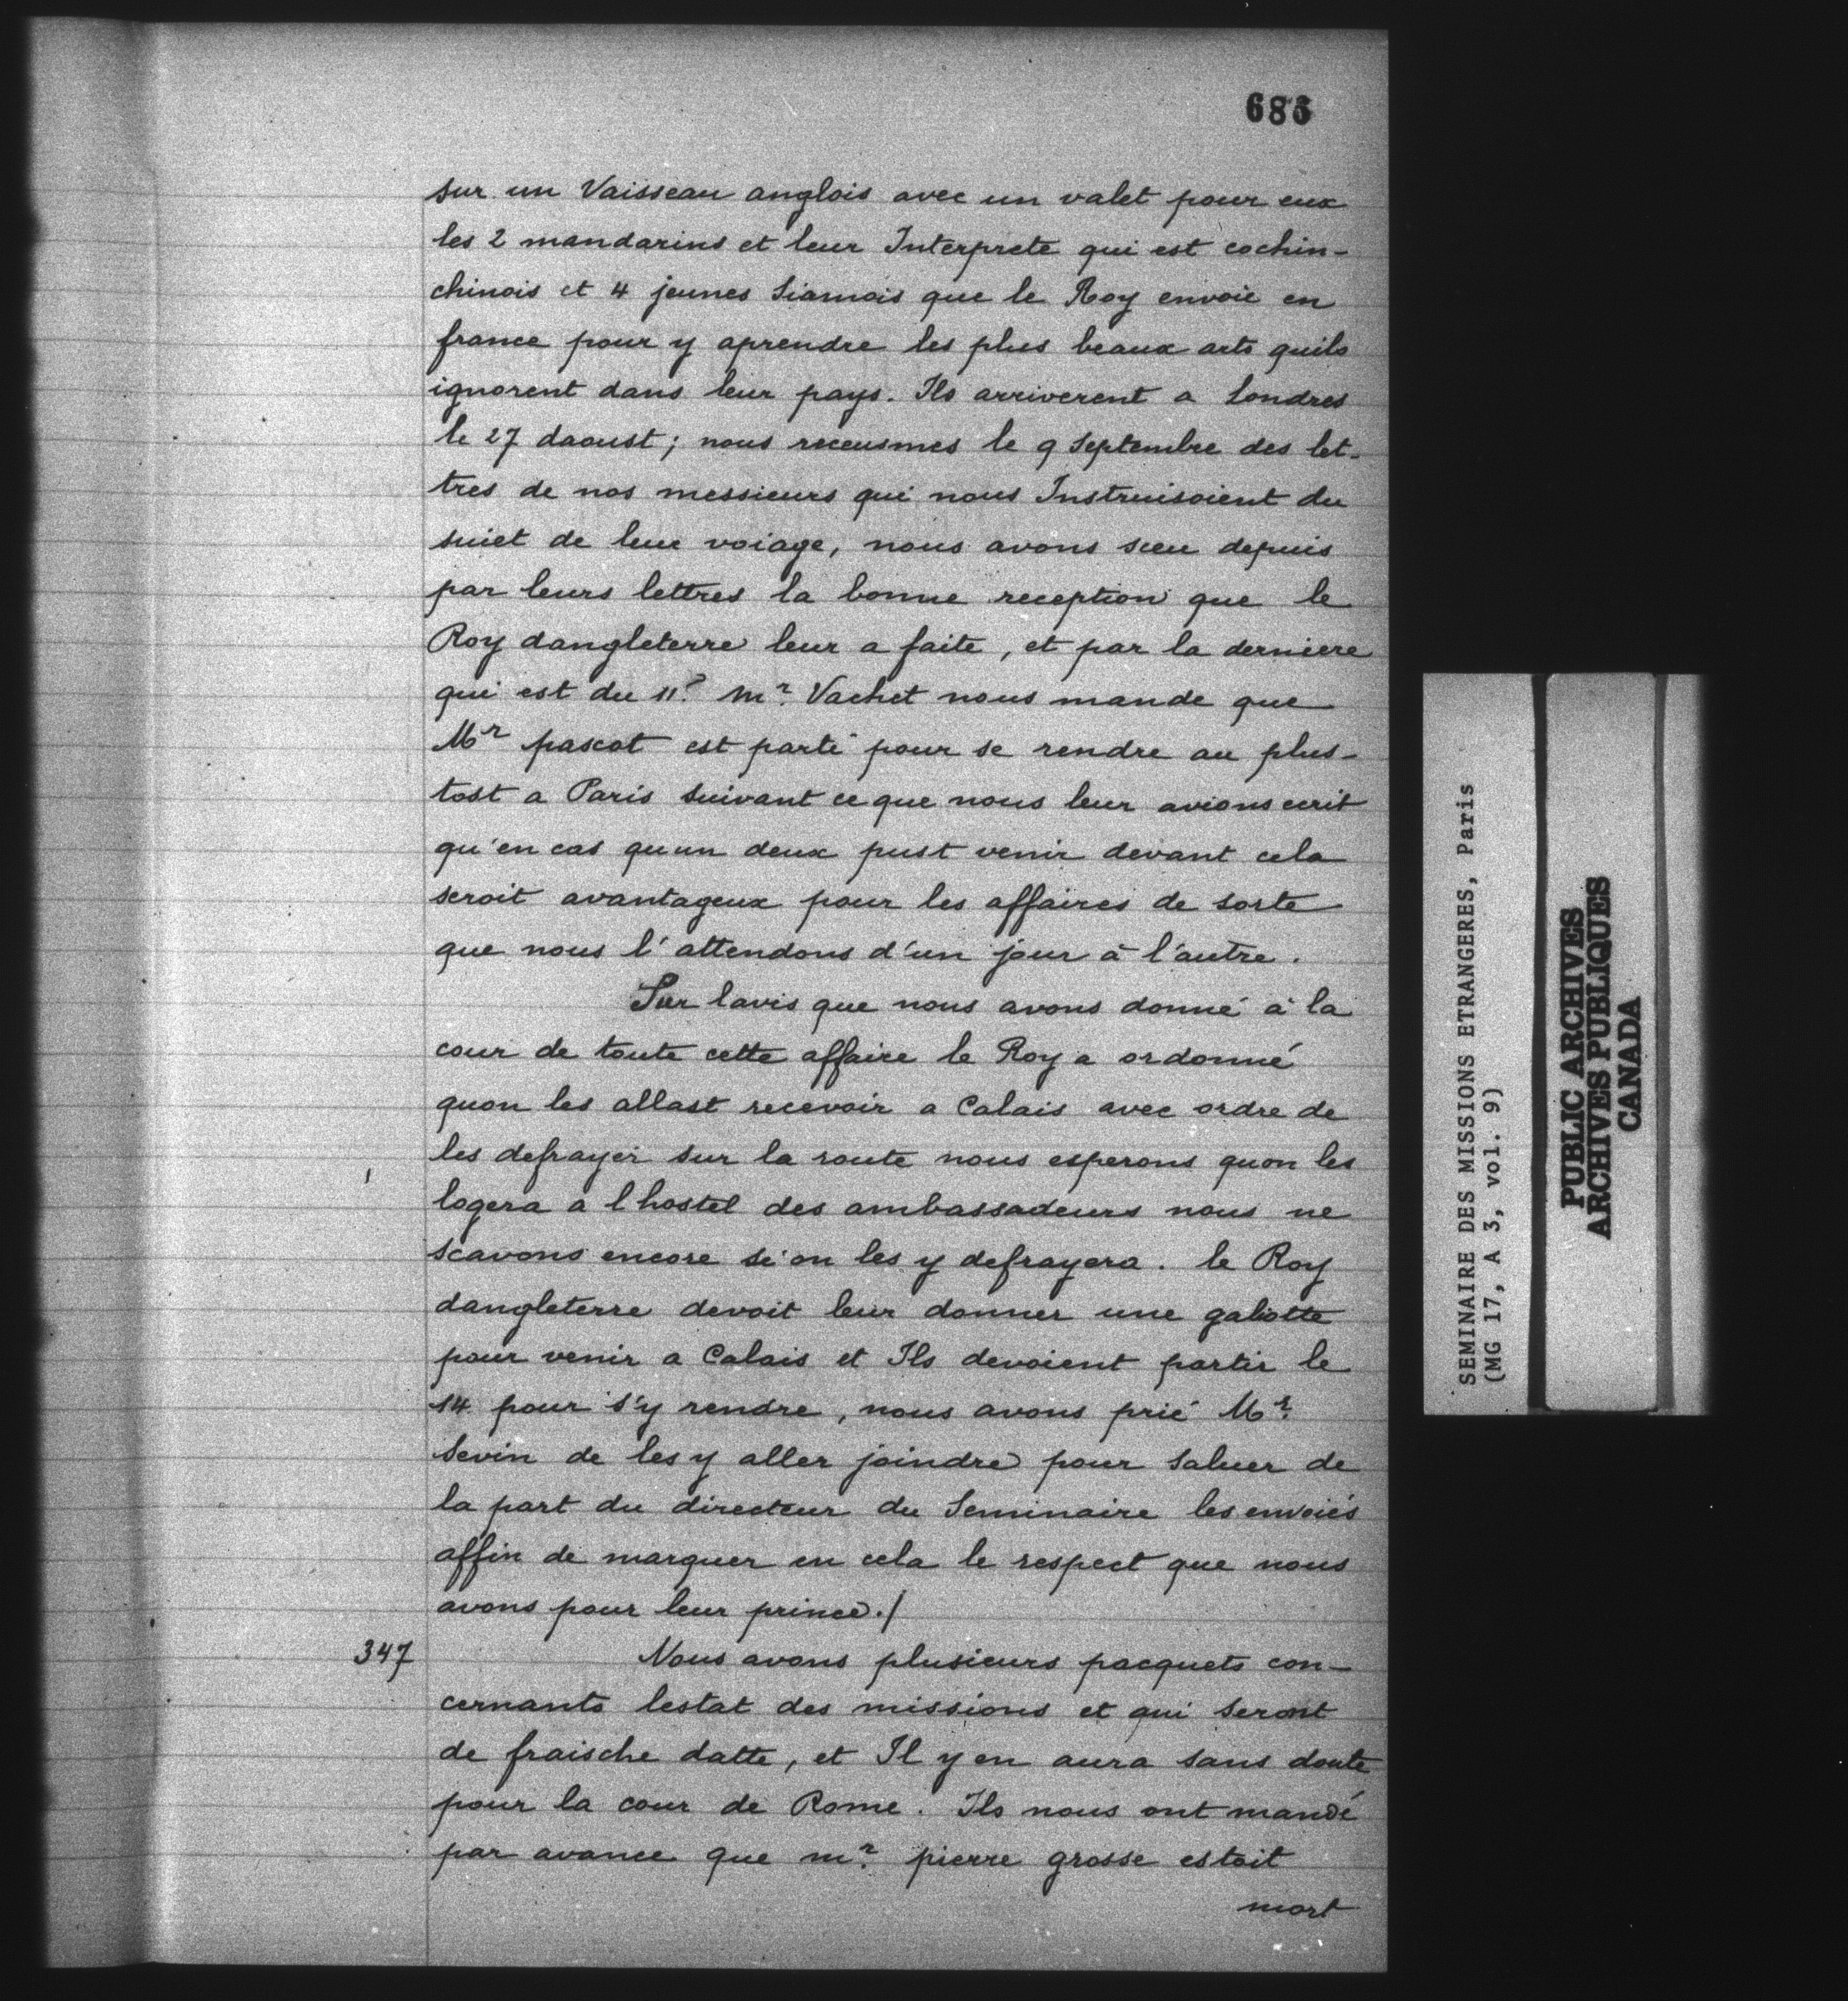 sur un Vaisseau anglois avec un valet pour eux
les 2 mandarins et leur Interprete qui est cochin-
chinois et 4 jeunes Siamois que le Roy envoie en
france pour y aprendre les plus beaux arts quils
ignorent dans leur pays. Ils arriverent a Londres
le 27 daoust; nous receusmes le 9 Septembre des let-
tres de nos messieurs qui nous Instruisoient du
suiet de leur voiage, nous avons sceu depuis
par leurs lettres la bonne reception que le
Roy dangleterre leur a faite, et par la derniere
qui est du 11e mr. Vachet nous mande que
Mr pascot est parti pour se rendre au plus-
tost a Paris suivant ce que nous leur avions ecrit
qu'en cas quun deux pust venir devant cela
seroit avantageux pour les affaires de sorte
que nous l'attendons d'un jour à l'autre.
Sur lavis que nous avons donné à la
cour de toute cette affaire le Roy a ordonné
quon les allast recevoir a Calais avec ordre de
les defrayer sur la route nous esperons quon les
logera a lhostel des ambassadeurs nous ne
scavons encore si on les y defrayera. le Roy
dangleterre devoit leur donner une galiotte
pour venir a Calais et Ils devoient partir le
14 pour s'y rendre, nous avons prié Mr.
Sevin de les y aller joindre pour saluer de
la part du directeur du Seminaire les envoiés
affin de marquer en cela le respect que nous
avons pour leur prince./
347
Nous avons plusieurs pacquets con-
cernants lestat des missions et qui seront
de fraische datte, et Il y en aura sans doute
pour la cour de Rome. Ils nous ont mandé
par avance que mr. pierre grosse estoit
mort
SEMINAIRE DES MISSIONS ETRANGERES, Paris
(MG 17, A 3, vol. 9)
PUBLIC ARCHIVES
ARCHIVES PUBLIQUES
CANADA